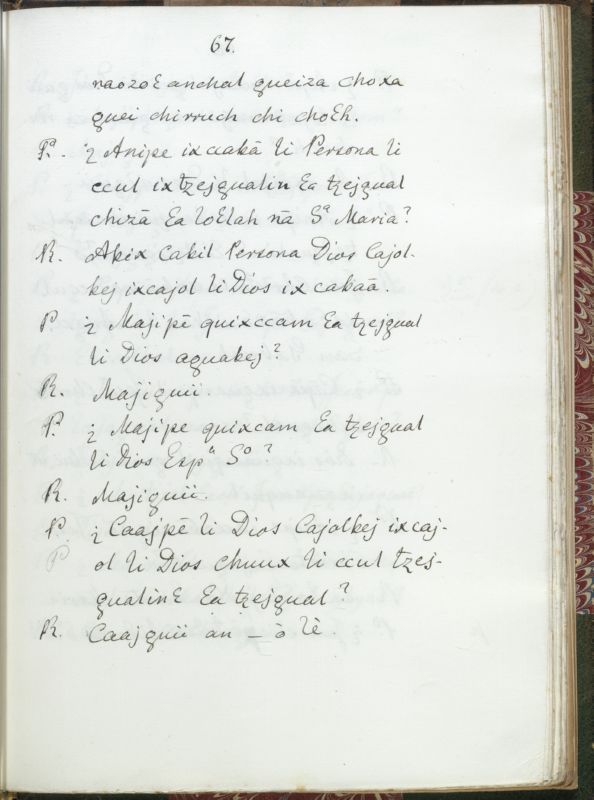 67.
naozoƐ anchal queiza choxa
quei chirruch chi choƐh.
P. ¿ Anipe ix ccakā li Persona li
ccul ix tzejqualin Ɛa tzejqual
chizā Ɛa loƐlah nā Sª Maria?
R. oAkix Cakil Persona Dios Cajol-
kej ixcajol li Dios ix cakaā.
P. ¿ Majipē quixccam Ɛa tzejqual
li Dios aguakej?
R. Majiquii.
P. ¿ Majipe quixcam Ɛa tzejqual
li Dios Espᵘ Sº?
R. Majiquii.
P. ¿ Caajpē li Dios Cajolkej ixcaj-
P ol li Dios chuux li ccul tzej-
qualinƐ Ɛa tzejqual?
R. Caajquii an – ò lè.